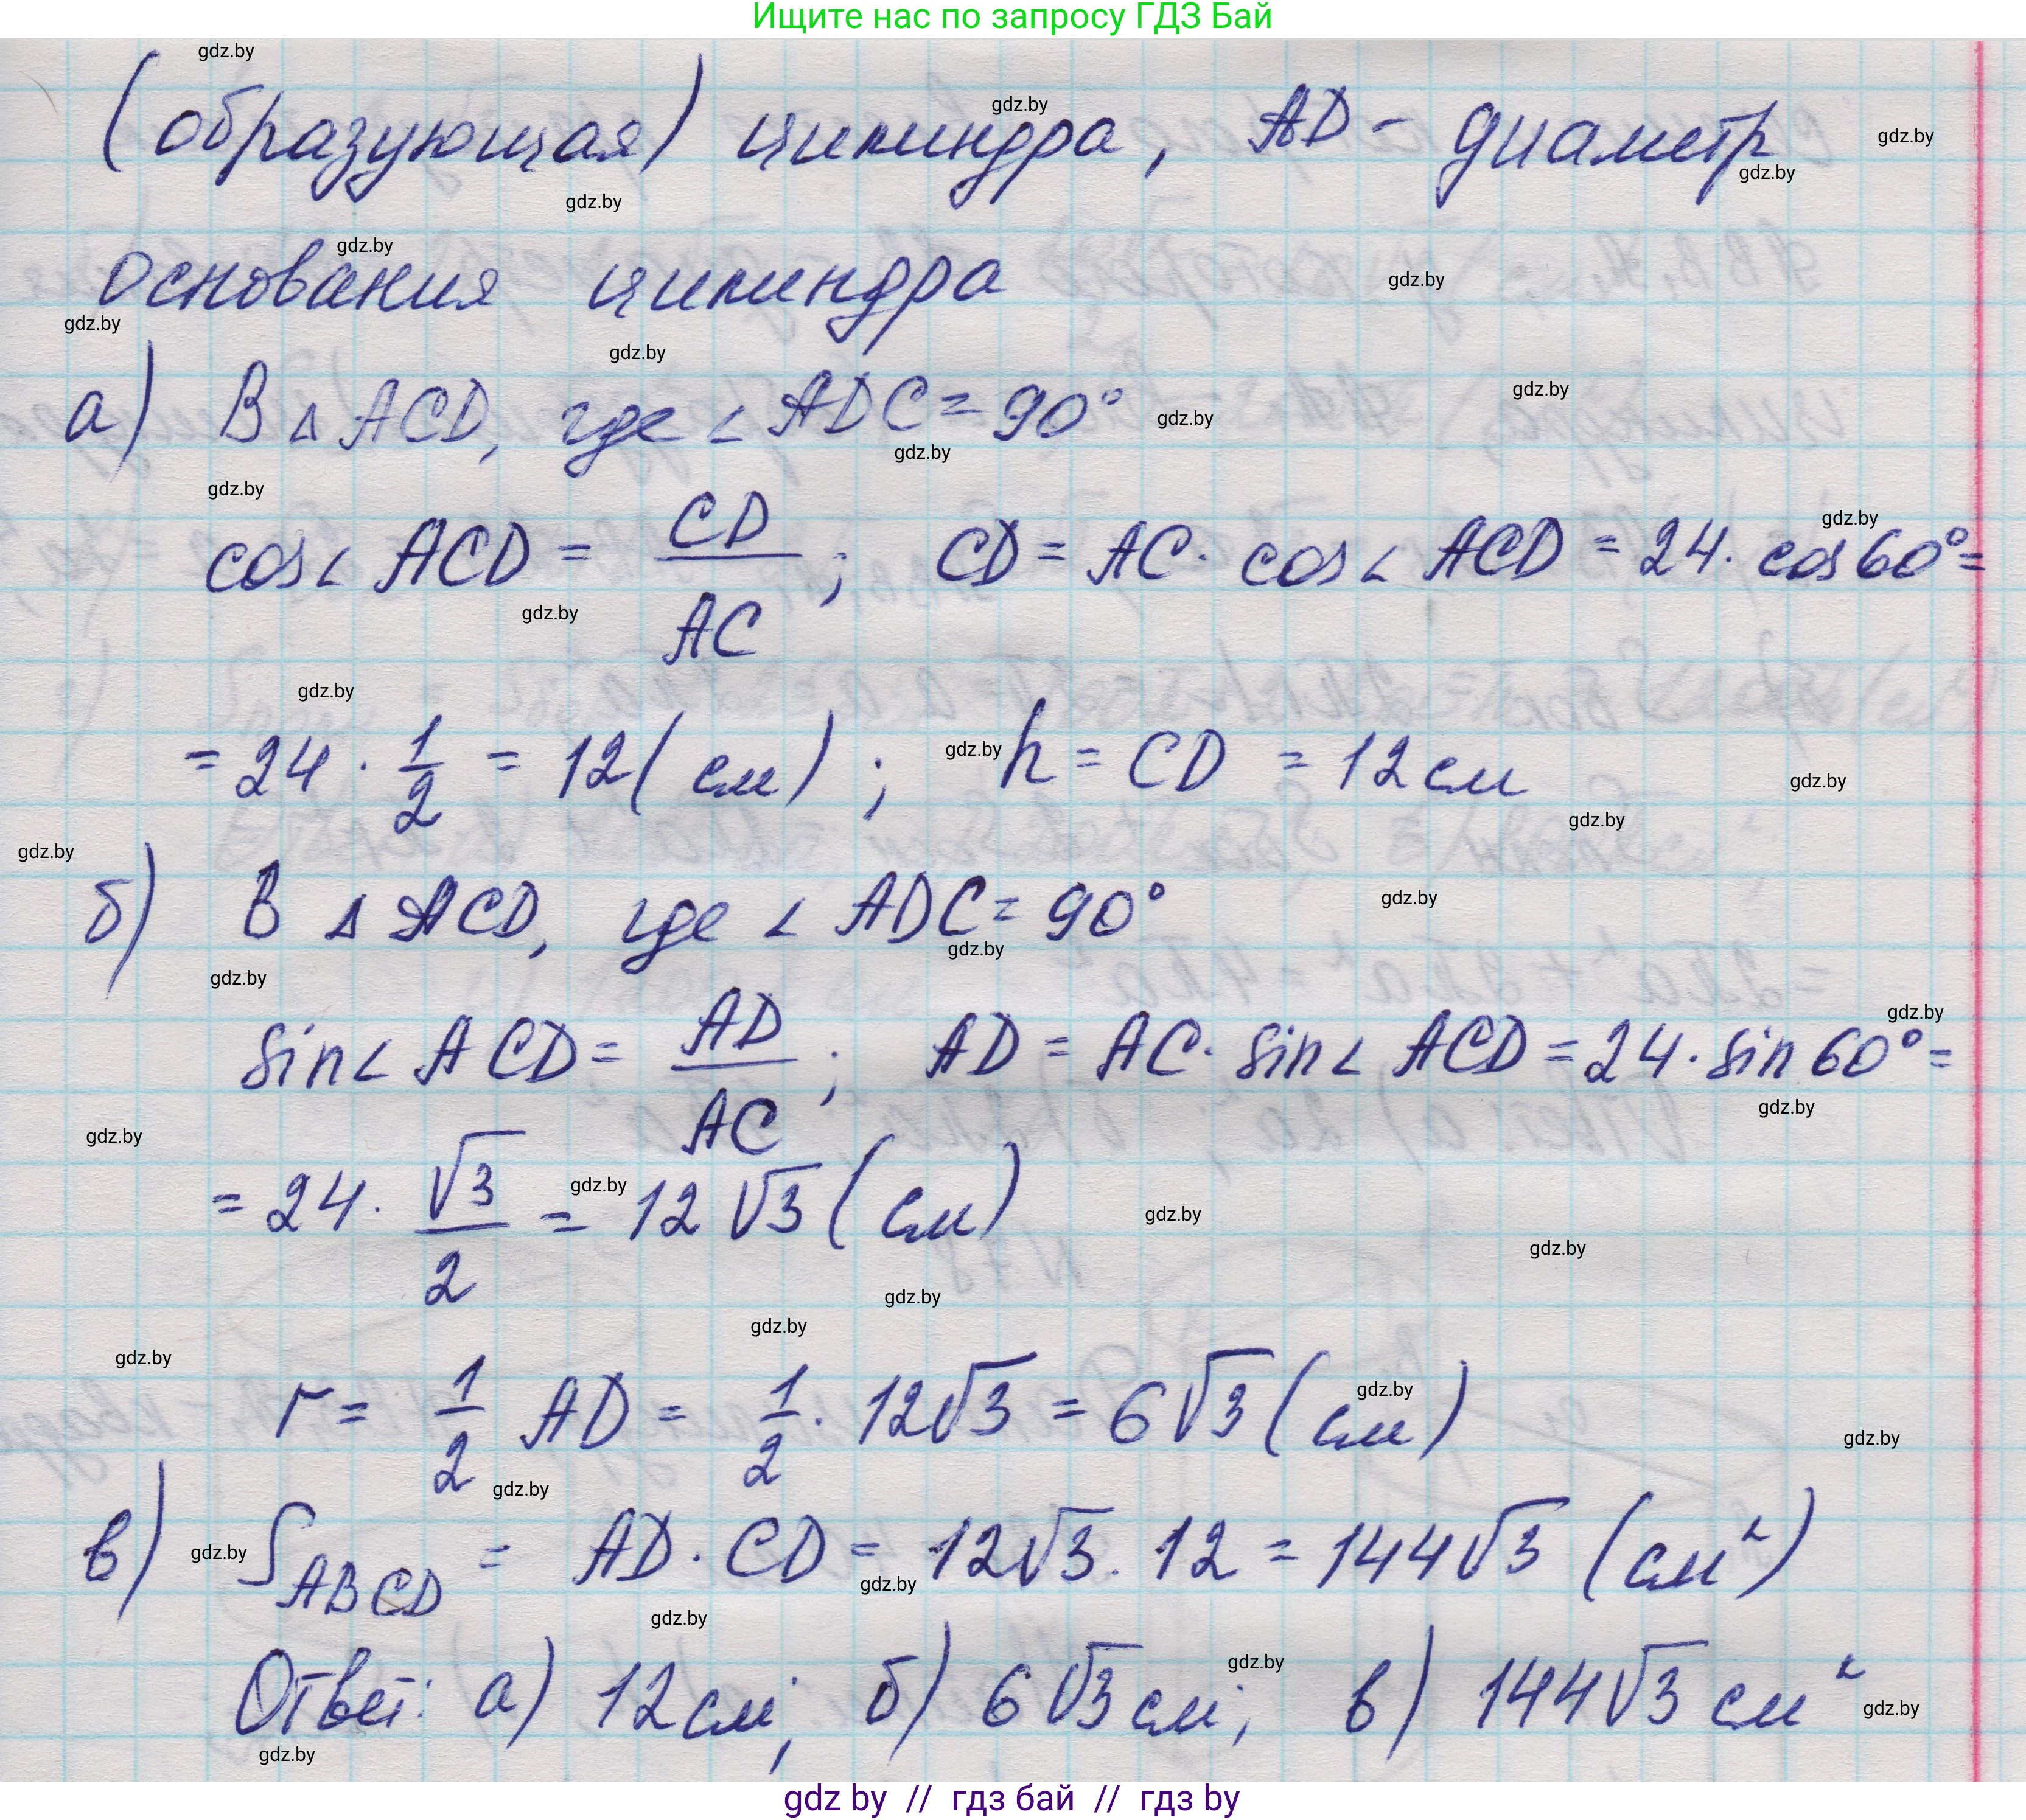 Ищите нас по запросу ГДЗ Бай
(образующая) цилиндра, AD - диаметр
основания цилиндра
а) В △ ACD, где ∠ ADC = 90°
cos∠ ACD = CD/AC; CD = AC · cos∠ ACD = 24 · cos 60° =
= 24 · 1/2 = 12 (см); h = CD = 12 см
б) В △ ACD, где ∠ ADC = 90°
sin∠ ACD = AD/AC; AD = AC · sin∠ ACD = 24 · sin 60° =
= 24 · √3/2 = 12√3 (см)
r = 1/2 AD = 1/2 · 12√3 = 6√3 (см)
в) S_ABCD = AD · CD = 12√3 · 12 = 144√3 (см²)
Ответ: а) 12 см; б) 6√3 см; в) 144√3 см²
gdz by // гдз бай // гдз by